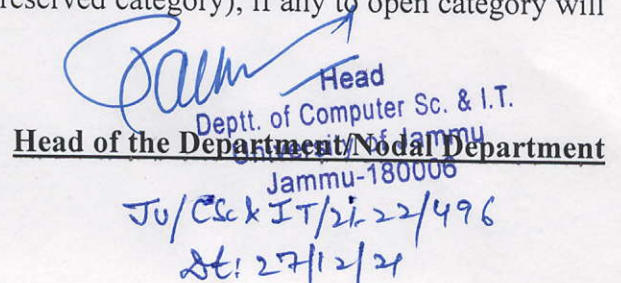 reserved category), if any to open category will
Head
Deptt. of Computer Sc. & I.T.
University of Jammu
Head of the Department/Nodal Department
Jammu-180006
JU/CSc & IT/21-22/496
Dt: 27/12/21